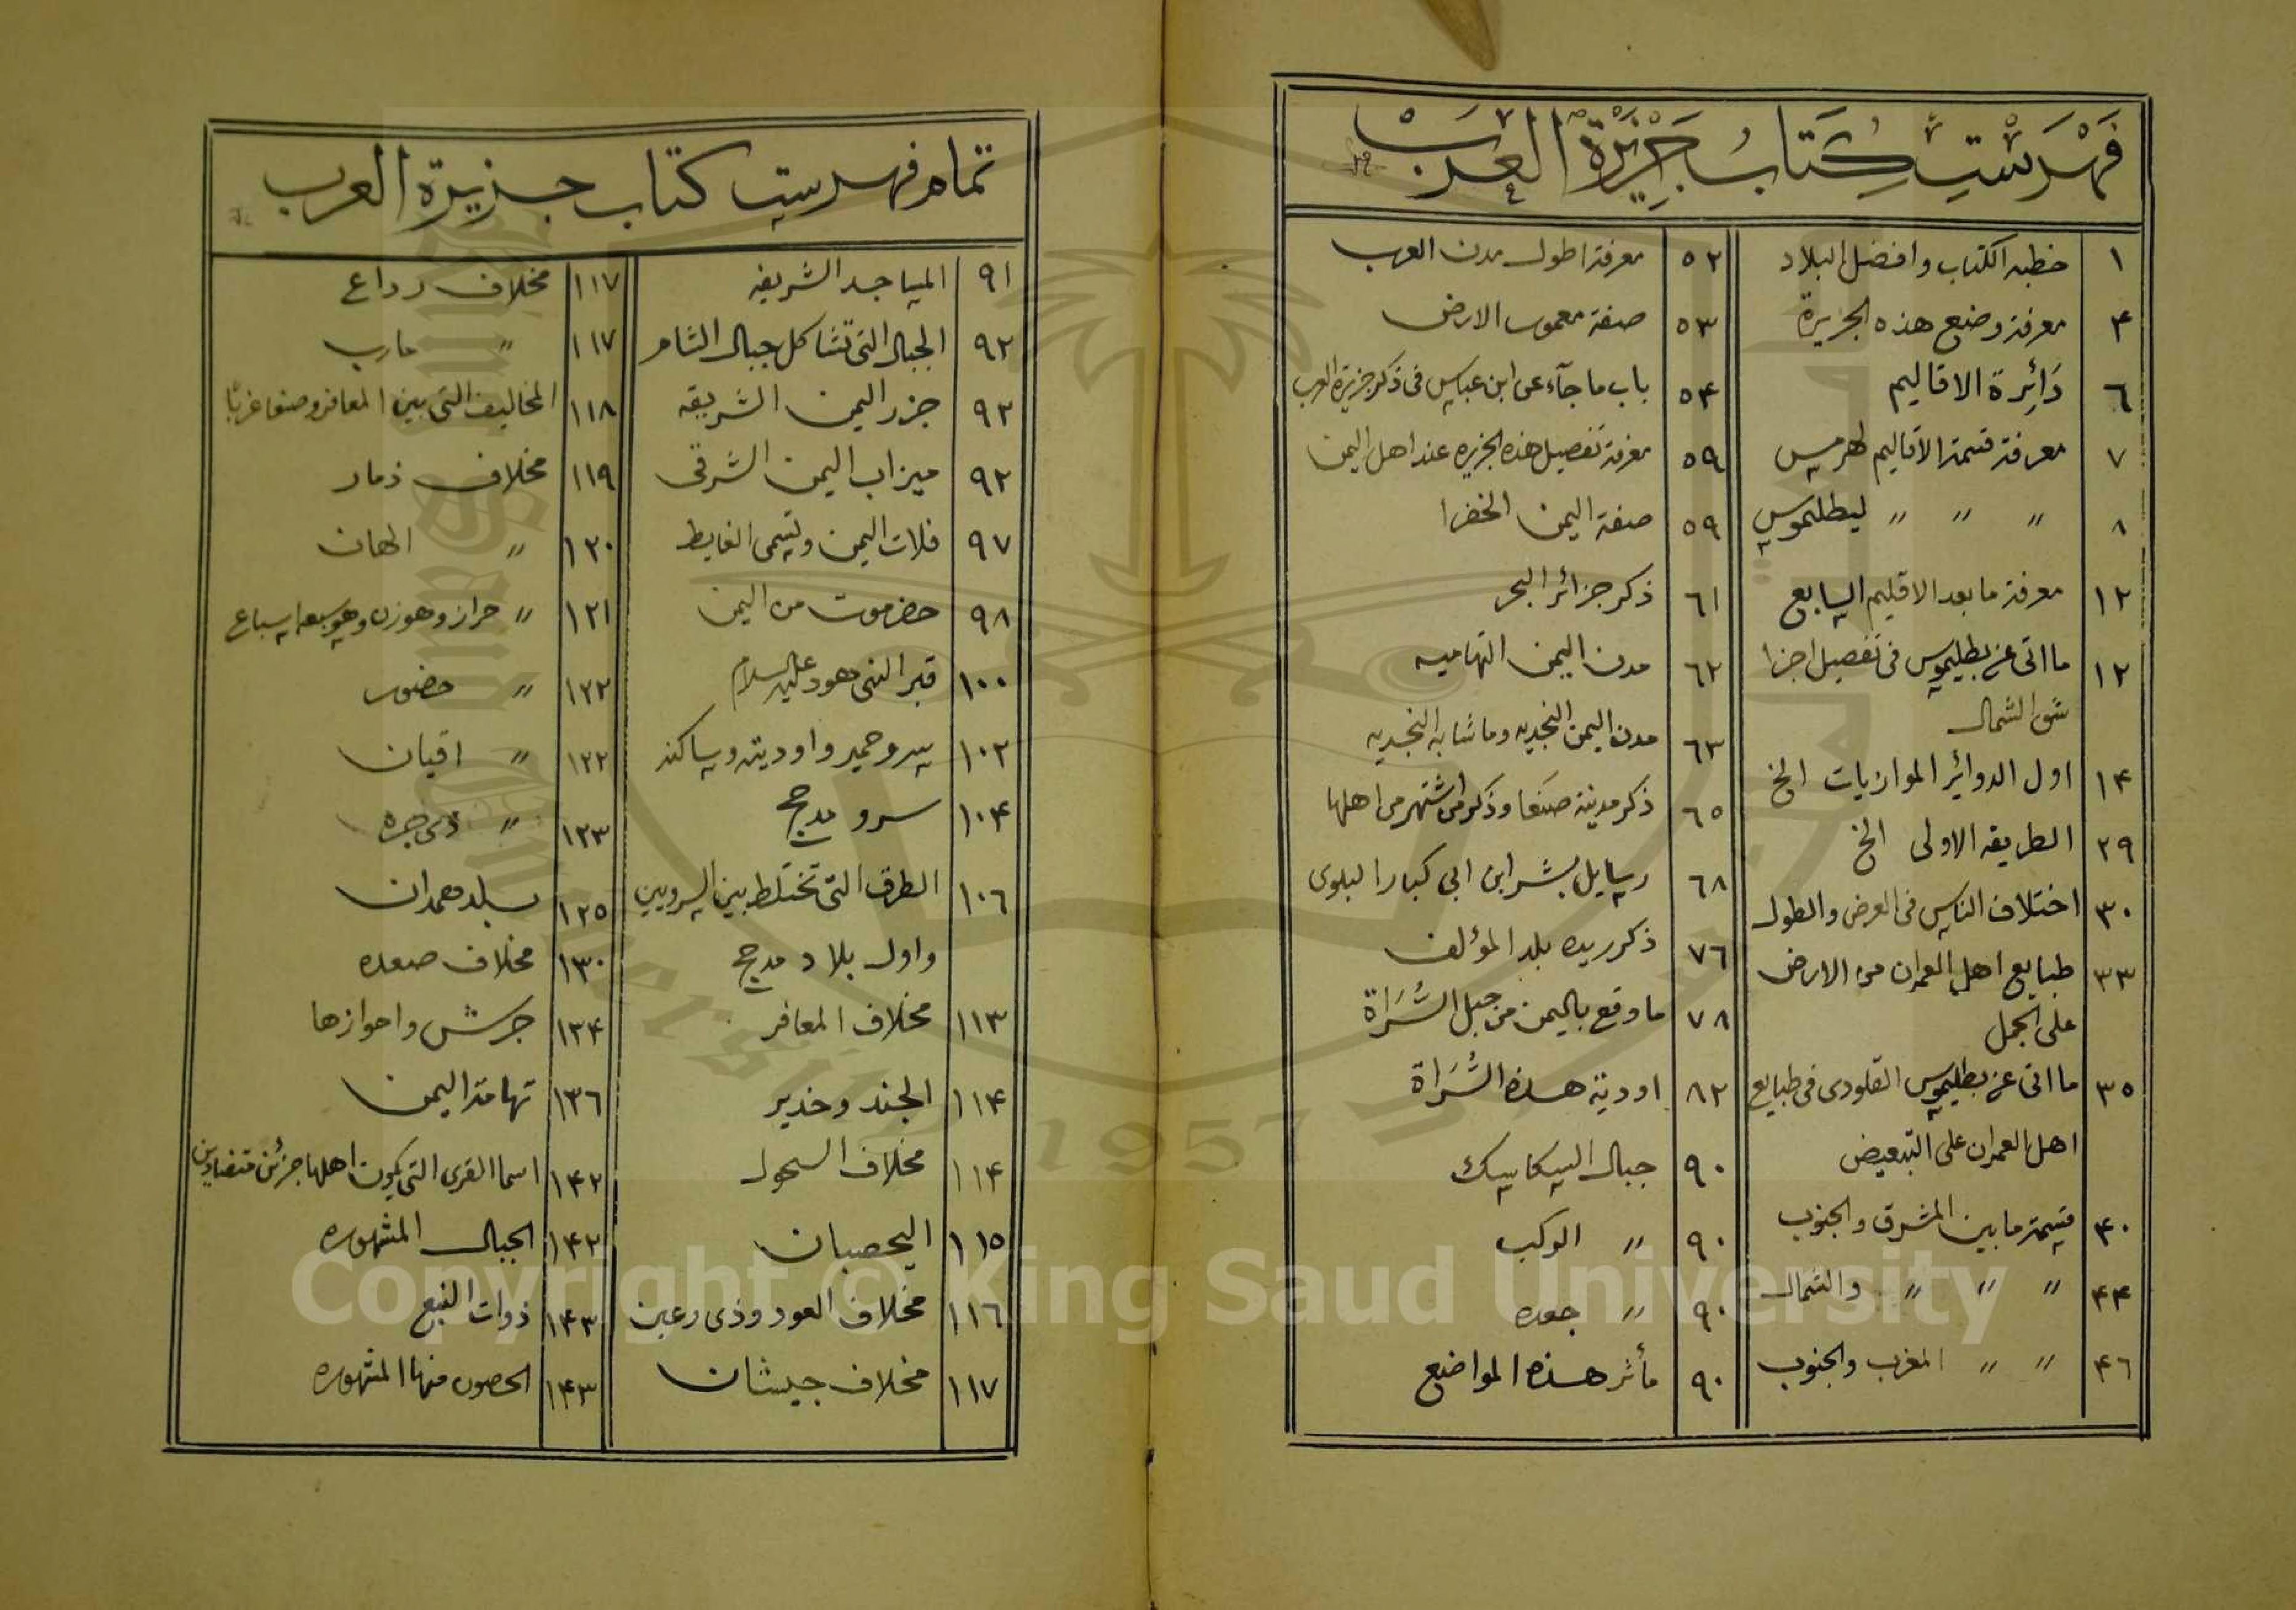 فهرست كتاب جزيرة العرب
١ خطبه الكتاب وافضل البلاد
٤ معرفة وضع هذه الجزيرة
٦ دَائِرة الاقاليم
٧ معرفة قسمة الاقاليم لهرمس
٨ " " " لبطليموس
١٢ معرفة ما بعد الاقليم السابع
١٢ ما اتى عن بطليموس فى تفصيل اجزا
شق الشمال
١٤ اول الدوائر الموازيات الخ
٢٩ الطريقه الاولى الخ
٣٠ اختلاف الناس فى العرض والطول
٣٣ طبايع اهل العمران من الارض
على الجمل
٣٥ ما اتى عن بطليموس القلودى فى طبايع
اهل العمران على التبعيض
٤٠ قسمة ما بين المشرق والجنوب
٤٤ " " " والشمال
٤٦ " " المغرب والجنوب
٥٢ معرفة اطول مدن العرب
٥٣ صفة معمور الارض
٥٤ باب ما جآء عن ابن عباس فى ذكر جزيرة العرب
٥٩ معرفة تفصيل هذه الجزيره عند اهل اليمن
٥٩ صفة اليمن الخضرا
٦١ ذكر جزائر البحر
٦٢ مدن اليمن التهاميه
٦٣ مدن اليمن النجديه وما شابه النجديه
٦٥ ذكر مدينة صنعا وذكر من اشتهر من اهلها
٦٨ رسايل بشر ابن ابي كبار البلوى
٧٦ ذكر ريده بلد المؤلف
٧٨ ما وقع باليمن من جبل السُّرَاة
٨٢ اودية هذه السُّرَاة
٩٠ جبال السكاسك
٩٠ " الركب
٩٠ " جعده
٩٠ مأثر هذه المواضع
تمام فهرست كتاب جزيرة العرب
٩١ المساجد الشريفه
٩٢ الجبال التى تشاكل جبال الشام
٩٢ جزر اليمن الشريقه
٩٢ ميزاب اليمن الشرقى
٩٧ فلات اليمن وتسمى الغايط
٩٨ حضرموت من اليمن
١٠٠ قبر النبى هود عليه السلام
١٠٢ سرو حمير واوديته وساكنه
١٠٤ سرو مدحج
١٠٦ الطرق التى تختلط بين السروين
واول بلاد مدحج
١١٣ مخلاف المعافر
١١٤ الجند وخدير
١١٤ مخلاف السحول
١١٥ اليحصبان
١١٦ مخلاف العود وذى رعين
١١٧ مخلاف جيشان
١١٧ مخلاف رداع
١١٧ " مارب
١١٨ المخاليف التى بين المعافر وصنعا غربًا
١١٩ مخلاف ذمار
١٢٠ " الهان
١٢١ " حراز وهوزن وهو سبعه اسباع
١٢٢ " حضور
١٢٢ " اقيان
١٢٣ " ذى جره
١٢٥ بلد همدان
١٣٠ مخلاف صعده
١٣٤ جرش واحوازها
١٣٦ تهامة اليمن
١٤٢ اسما القرى التى يكون اهلها جزئين متضادين
١٤٢ الجبال المشهوره
١٤٣ ذوات النبع
١٤٣ الحصون منها المشهوره
Copyright © King Saud University
1957